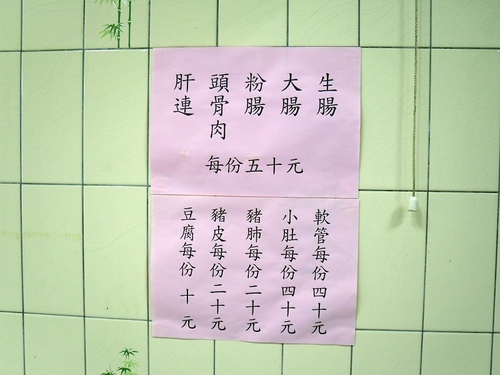 生腸
大腸
粉腸
頭骨肉
肝連
每份五十元
軟管每份四十元
小肚每份四十元
豬肺每份二十元
豬皮每份二十元
豆腐每份十元